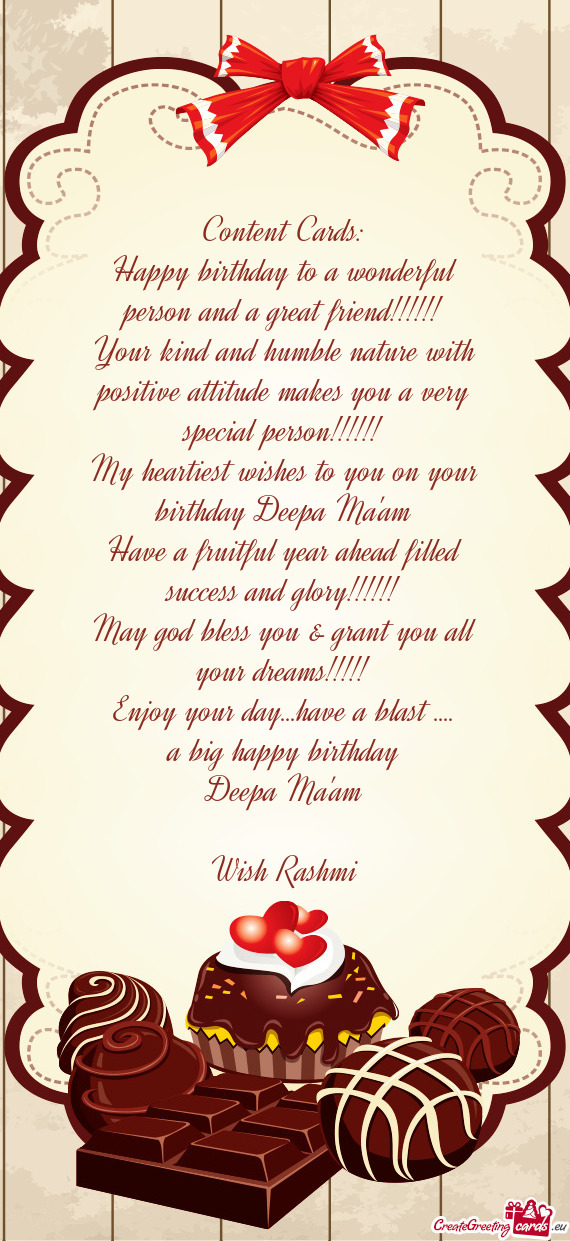 Content Cards:
Happy birthday to a wonderful
person and a great friend!!!!!!
Your kind and humble nature with
positive attitude makes you a very
special person!!!!!!
My heartiest wishes to you on your
birthday Deepa Ma'am
Have a fruitful year ahead filled
success and glory!!!!!!
May god bless you & grant you all
your dreams!!!!!
Enjoy your day...have a blast ....
a big happy birthday
Deepa Ma'am
Wish Rashmi
CreateGreetingcards.eu